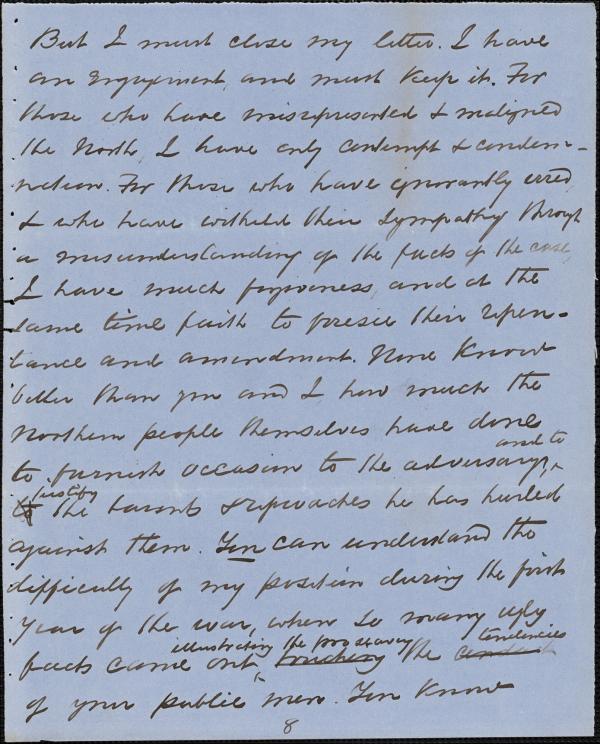 But I must close my letter. I have
an engagement, and must keep it. For
those who have misrepresented & maligned
the North I have only contempt & condem-
nation. For those who have ignorantly erred,
& who have witheld their sympathy through
a misunderstanding of the facts of the case,
I have much forgiveness, and at the
same time faith to foresee their repen-
tance and amendment. None know
better than you and I how much the
Northern people themselves have done
and to
to furnish occasion to the adversary,
justify
the taunts & reproaches he has hurled
against them. You can understand the
difficulty of my position during the first
year of the war, when so many ugly
illustrating the proslavery tendencies
facts came out, touching the
of your public men. You know
8